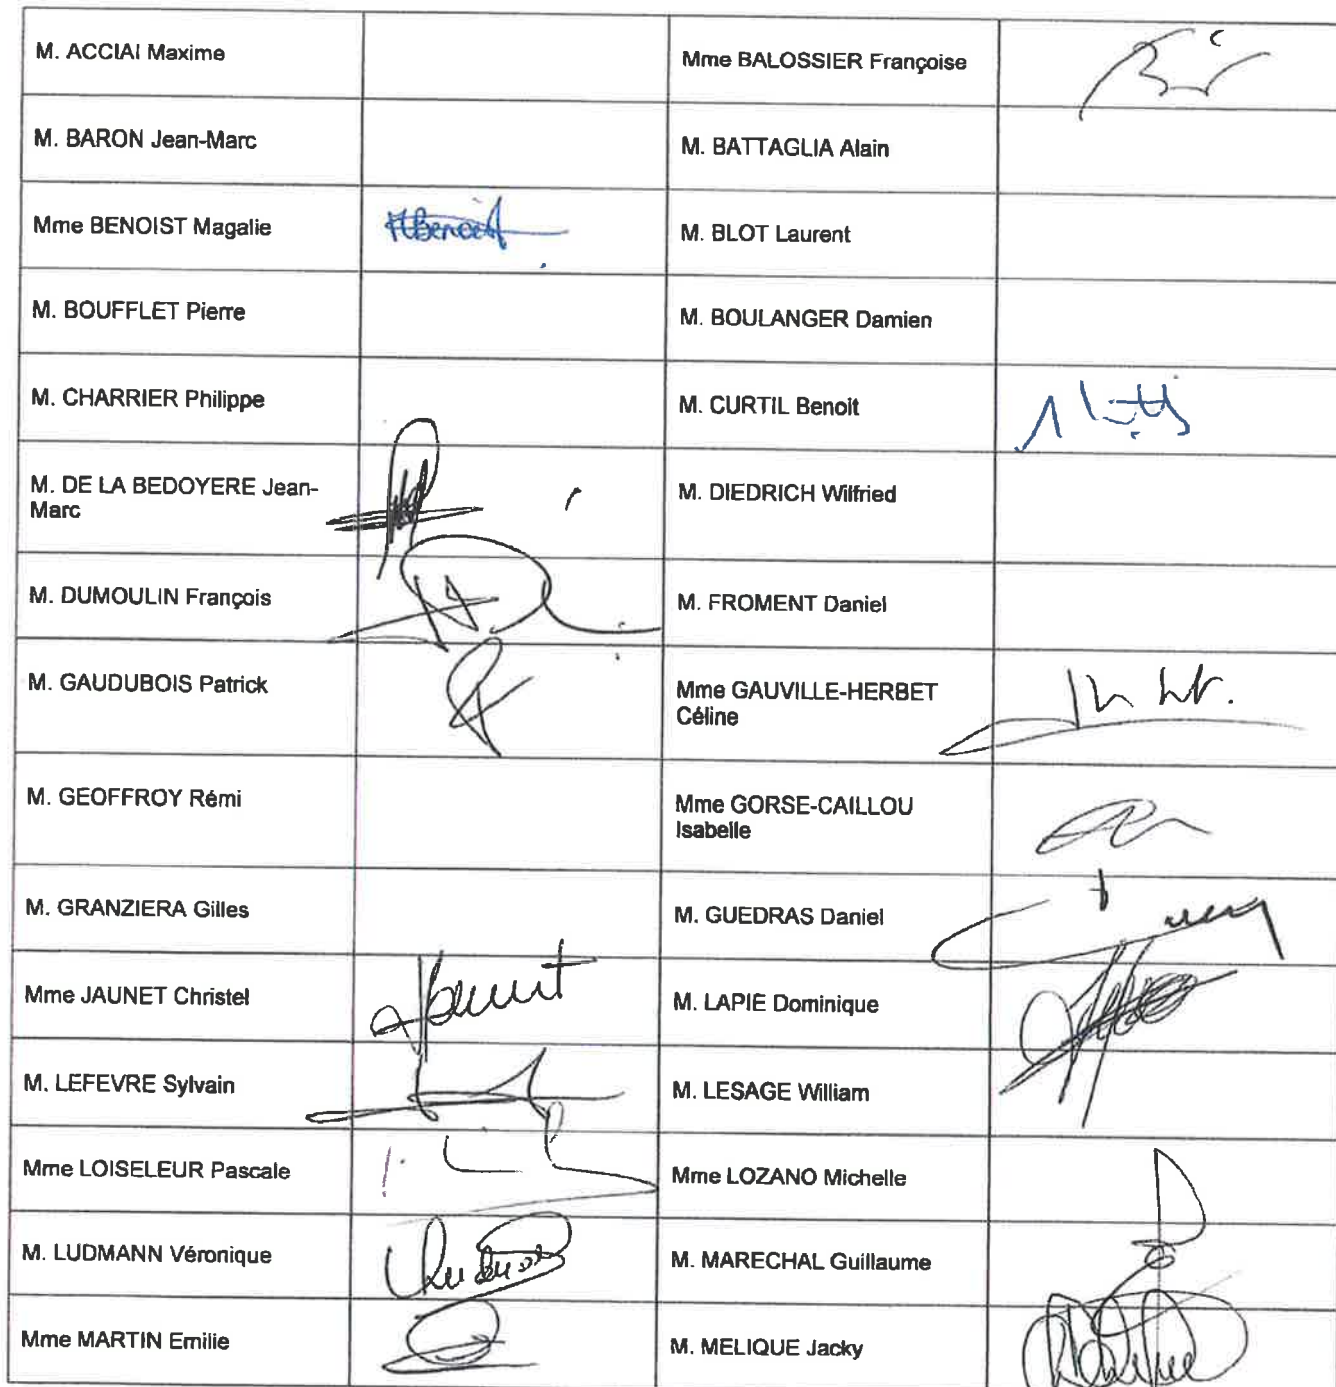 M. ACCIAI Maxime
Mme BALOSSIER Françoise
M. BARON Jean-Marc
M. BATTAGLIA Alain
Mme BENOIST Magalie
M. BLOT Laurent
M. BOUFFLET Pierre
M. BOULANGER Damien
M. CHARRIER Philippe
M. CURTIL Benoit
M. DE LA BEDOYERE Jean-
Marc
M. DIEDRICH Wilfried
M. DUMOULIN François
M. FROMENT Daniel
M. GAUDUBOIS Patrick
Mme GAUVILLE-HERBET
Céline
M. GEOFFROY Rémi
Mme GORSE-CAILLOU
Isabelle
M. GRANZIERA Gilles
M. GUEDRAS Daniel
Mme JAUNET Christel
M. LAPIE Dominique
M. LEFEVRE Sylvain
M. LESAGE William
Mme LOISELEUR Pascale
Mme LOZANO Michelle
M. LUDMANN Véronique
M. MARECHAL Guillaume
Mme MARTIN Emilie
M. MELIQUE Jacky